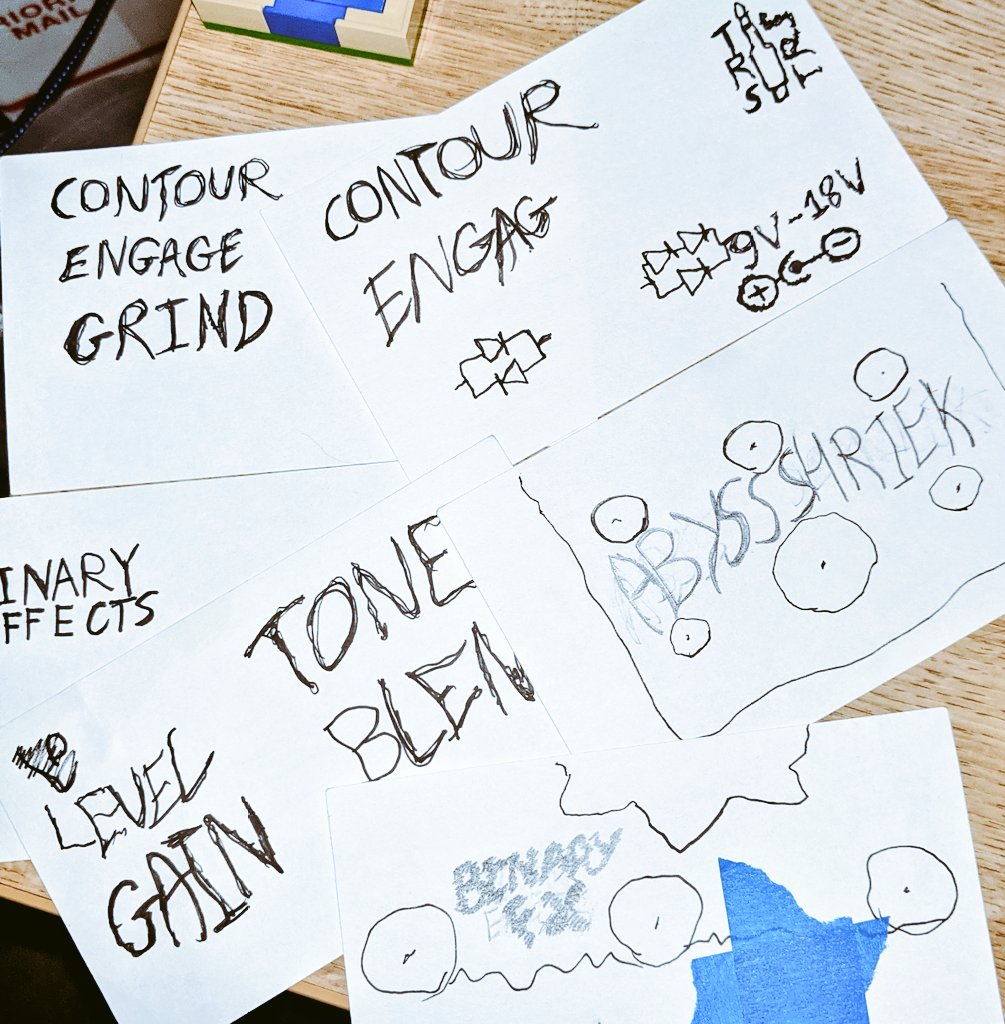 PRIORI
MAIL
CONTOUR
ENGAGE
GRIND
CONTOUR
ENGAG
9V-18V
+ -
ABYSSSHRIEK
INARY
FFECTS
TONE
BLEN
LEVEL
GAIN
BINARY